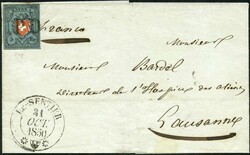 Franco
Monsieur
Monsieur Bardel
Directeur de l'Hospice des aliénés
Lausanne
LE SENTIER
31
OCT.
1850